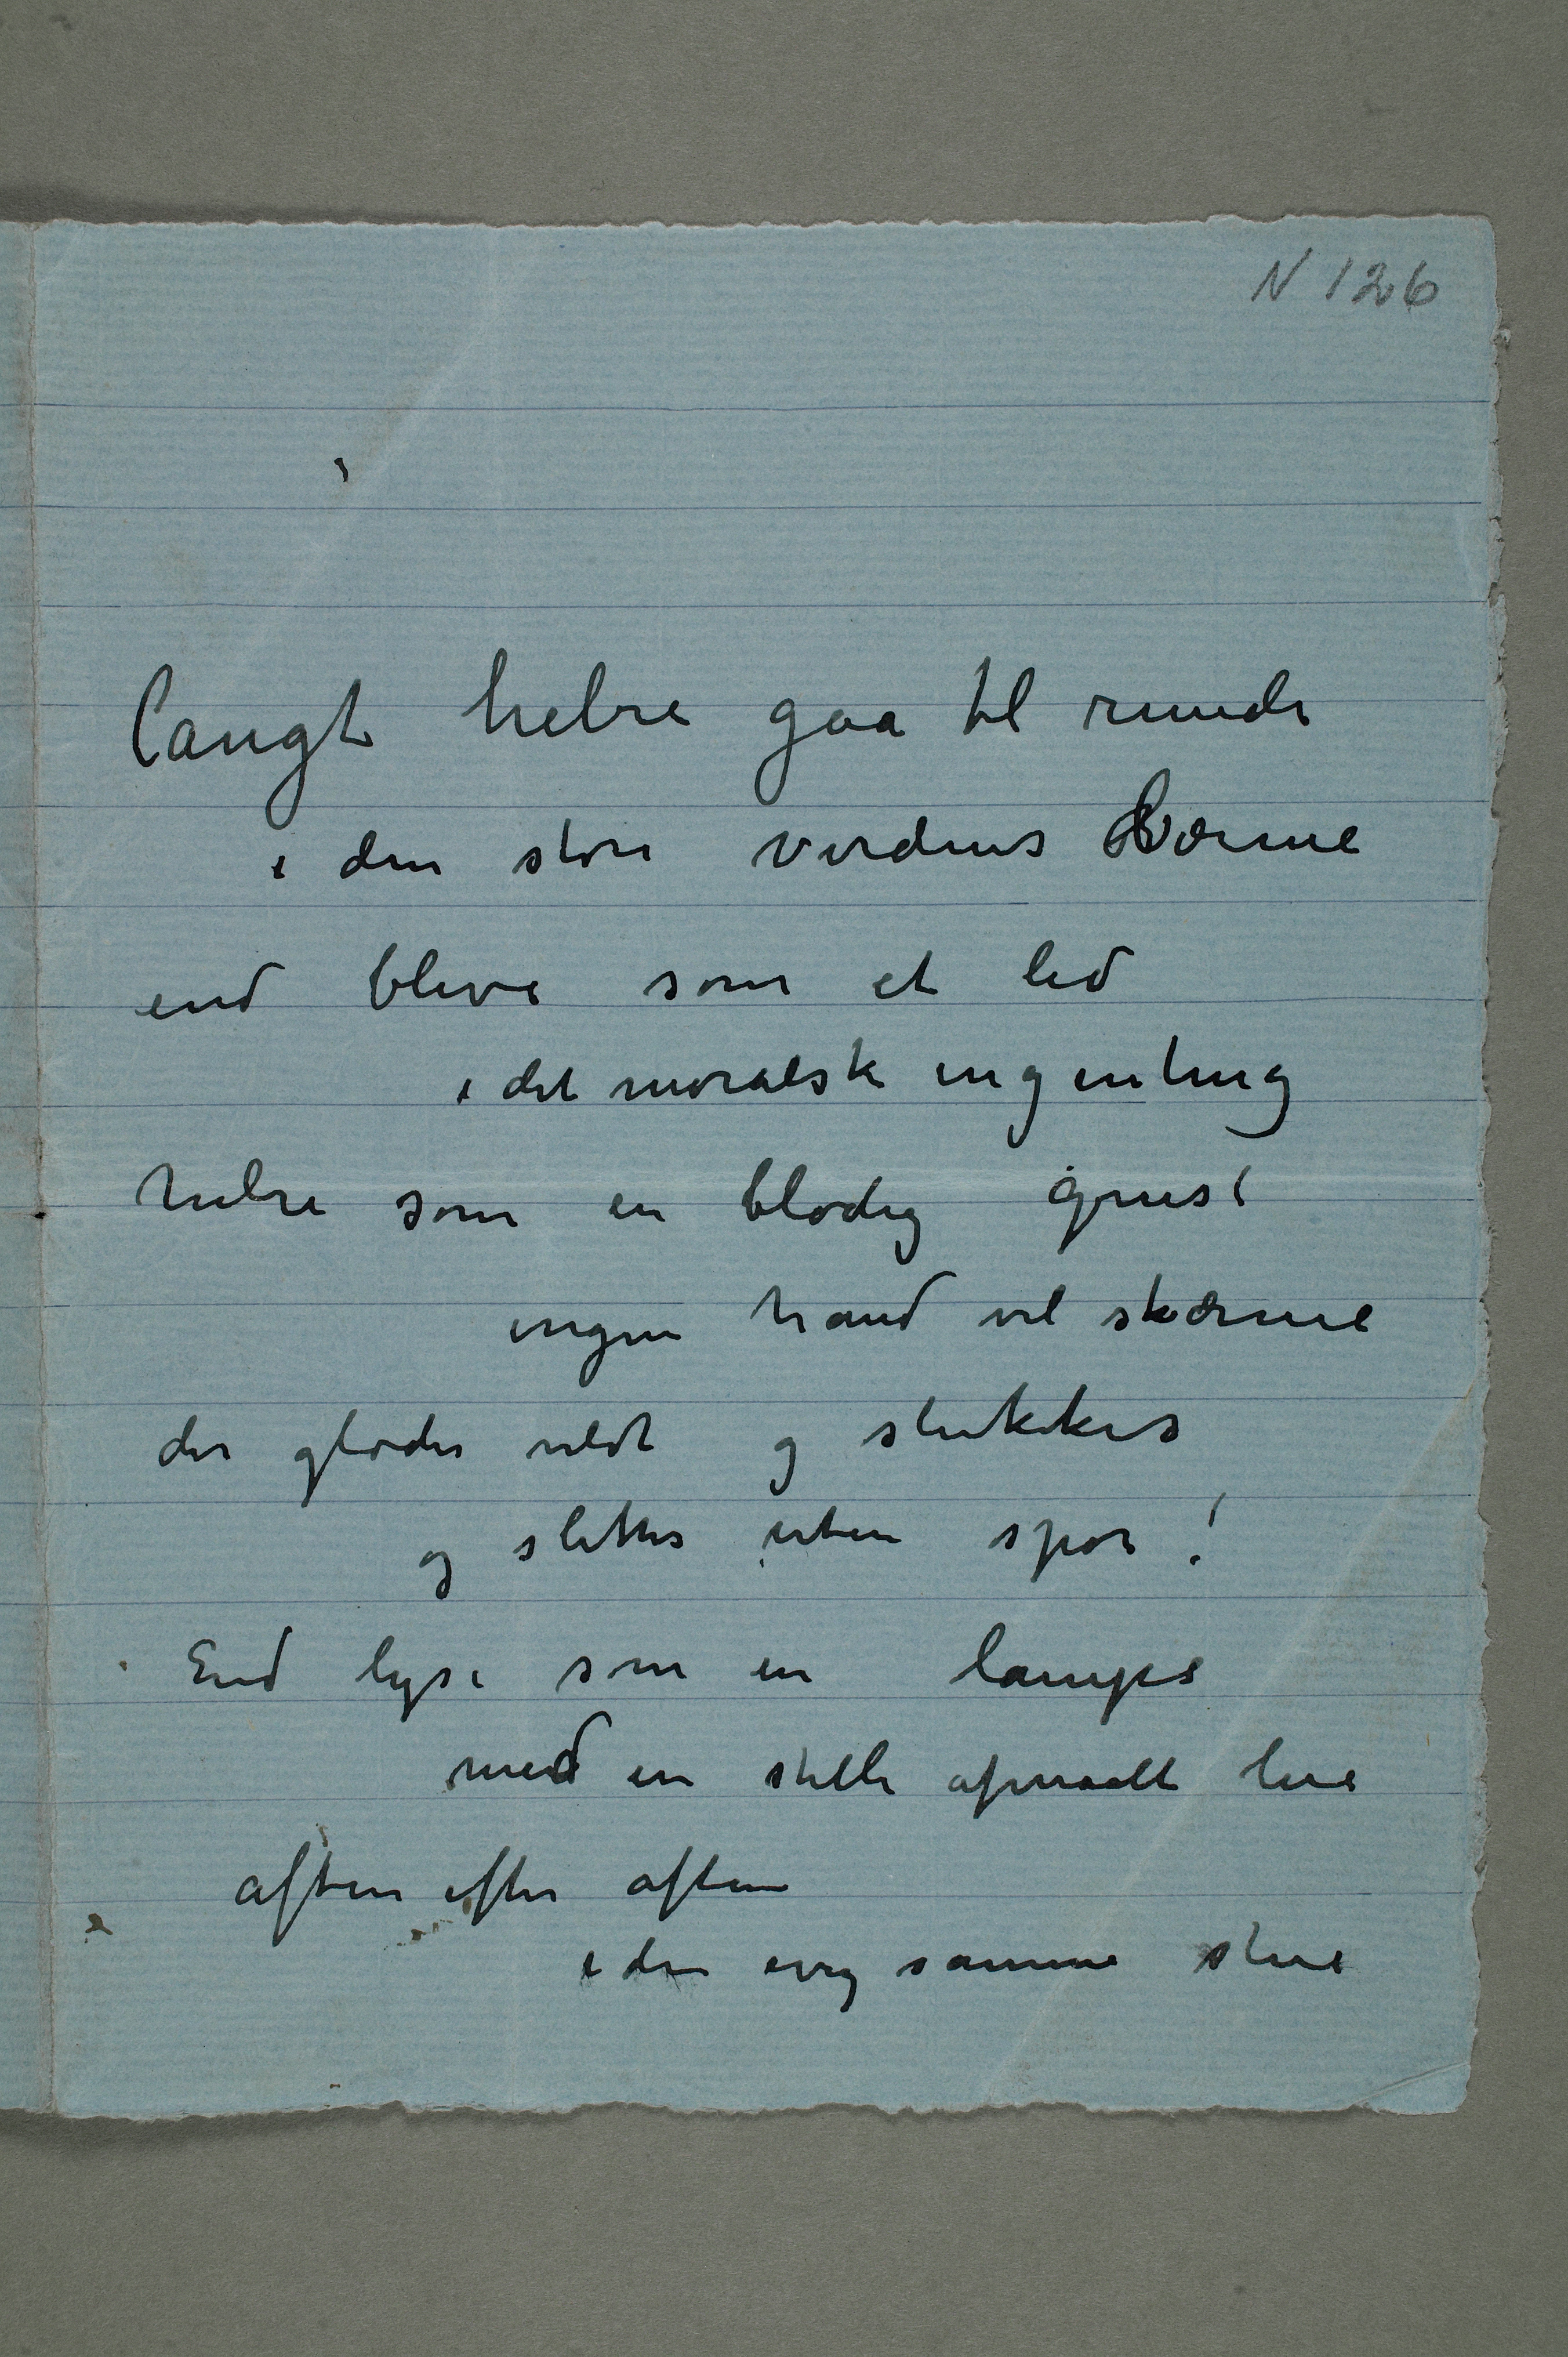 N 126
langt helre gaa til runde
i den store verdens lærme
end blive som et led
i det moralske ingenting
helre som en blodig gnist
ingen haand vil skærme
der gløder vildt og slukkes
og slettes uten spor!
End lyse som en lampe
med en stille afmaalt lue
aften efter aften
i den evig samme stue